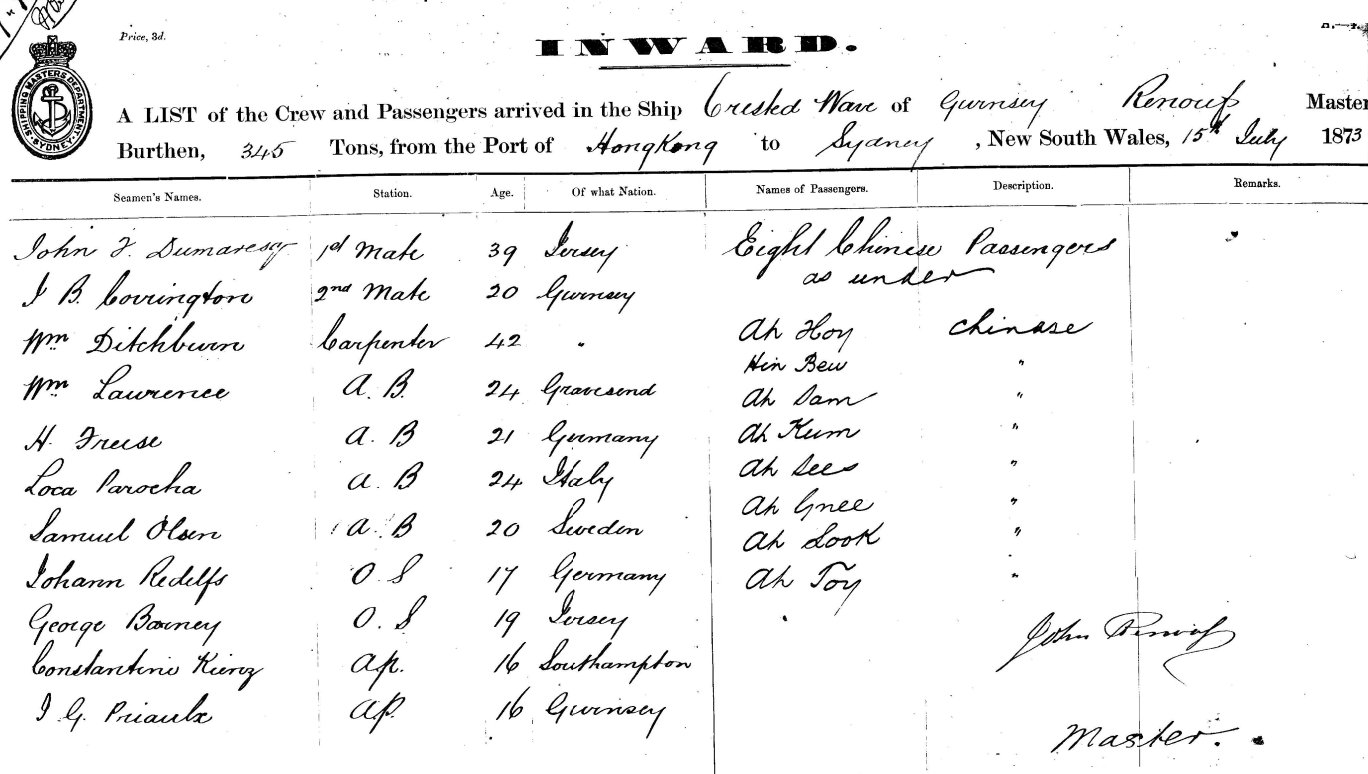 Price, 3d.
INWARD.
SHIPPING MASTERS DEPARTMENT. SYDNEY.
A LIST of the Crew and Passengers arrived in the Ship Crested Wave of Guernsey Renouf Master
Burthen, 345 Tons, from the Port of HongKong to Sydney, New South Wales, 15th July 1873
Seamen's Names. Station. Age. Of what Nation. Names of Passengers. Description. Remarks.
John F. Dumaresq 1st Mate 39 Jersey Eight Chinese Passengers
as under
J B. Covington 2nd Mate 20 Gurnsey
Wm Ditchburn Carpenter 42 " Ah Hoy Chinese
Hin Bew "
Wm Lawrence A. B. 24 Gravesend Ah Sam "
H. Freise A. B 21 Germany Ah Kum "
Loca Parocha A. B 24 Italy Ah Sees "
Ah Gnee "
Samuel Olsen A. B 20 Sweden Ah Look "
Johann Redelfs O S 17 Germany Ah Toy "
George Barney O. S 19 Jersey
Constantine Kienz Ap. 16 Southampton John Renouf
J G. Priaulx Ap. 16 Guernsey
Master.